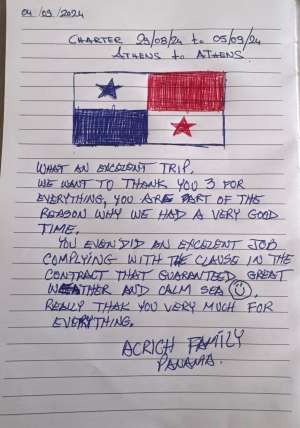 04/09/2024
CHARTER 29/08/24 to 05/09/24
ATHENS to ATHENS.
WHAT AN EXCELENT TRIP.
WE WANT TO THANK YOU 3 FOR
EVERYTHING, YOU ARE PART OF THE
REASON WHY WE HAD A VERY GOOD
TIME.
YOU EVEN DID AN EXCELENT JOB
COMPLYING WITH THE CLAUSE IN THE
CONTRACT THAT GUARANTEED GREAT
WEATHER AND CALM SEA 🙂.
REALLY THAK YOU VERY MUCH FOR
EVERYTHING.
ACRICH FAMILY
PANAMA.